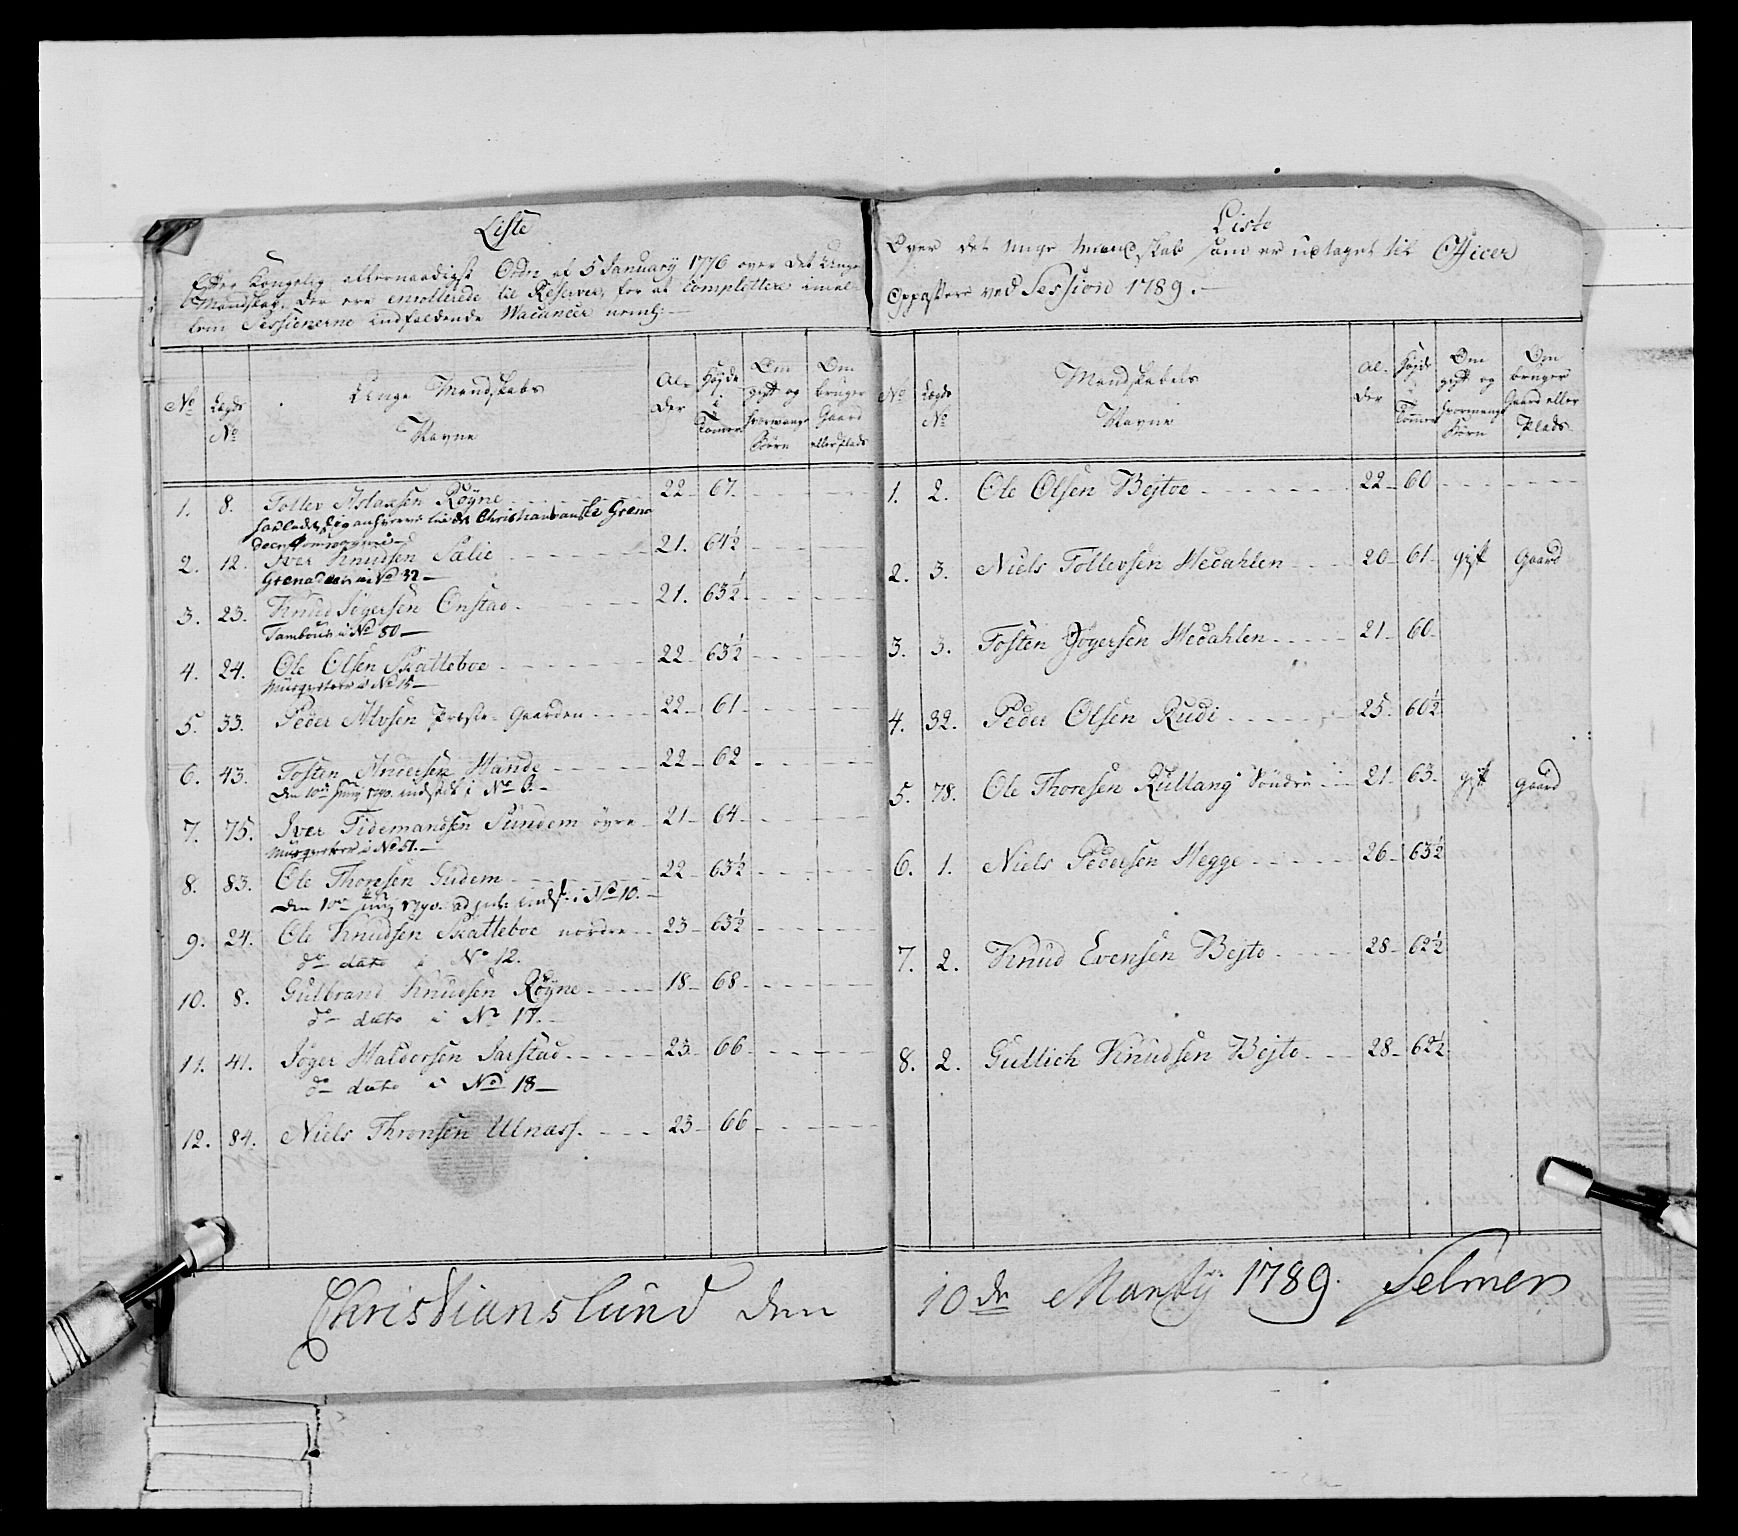 Liste
Efter Kongelig allernaadigst Ordre af 5 January 1776 over det Unge
Mandskab, der ere enrollerede til Reserver, for at complettere imel-
lem Sessionerne indfaldende Vacancer neml:
No
Lægds No
Unge Mandskabs Navne
Al- der
Høyde i Tommer
Om gift og hvormange Børn
Om bruger Gaard eller Plads
1. 8. Tollev Aslaksen Røyne 22 67.
Christiansanske Grena
2. 12. Iver Knudsen Sælie 21. 64½
Grenadeer No 32
3. 23. Knud Jøgersen Onstad 21. 63½
Tambour i No 80
4. 24. Ole Olsen Skatteboe 22 63½
i No 15
5. 33. Peder Alvsen Præste-Gaarden 22 61
6. 43. Tosten Andersen Hande 22 62
den 10de Junij 1790. indsadt i No 6.
7. 75. Iver Tidemandsen Sundem øvre 21 64
i No 51.
8. 83. Ole Thoresen Gudem 22 63½
den 10de Junij 1790. i No 10.
9. 24. Ole Knudsen Skatteboe nordre 23 63½
do dato i No 12.
10. 8. Gulbrand Knudsen Røyne 18 68
do dato i No 17.
11. 41. Jøger Haldorsen Jarstad 23 66
do dato i No 18
12. 84. Niels Thronsen Ulnæss. 23 66
Liste
Over det unge Mandskab som er udtaget til Officer
Oppassere ved Session 1789.
No
Lægds No
Mandskabets Navne
Al- der
Høyde i Tommer
Om gift og hvormange Børn
Om bruger Gaard eller Plads
1. 2. Ole Olsen Bejtoe 22 60
2. 3. Niels Tollevsen Hedahlen 20 61 gift Gaard
3. 3. Tosten Jøgersen Hedahlen 21 60
4. 32. Peder Olsen Rudi 25 60½
5. 78. Ole Thoresen Rullang Søndre 21 63 gift Gaard
6. 1. Niels Pedersen Hegge 26 63½
7. 2. Knud Evensen Bejto 28 62½
8. 2. Gullich Knudsen Bejto 28 62½
Christianslund den 10de Martij 1789. Selmer